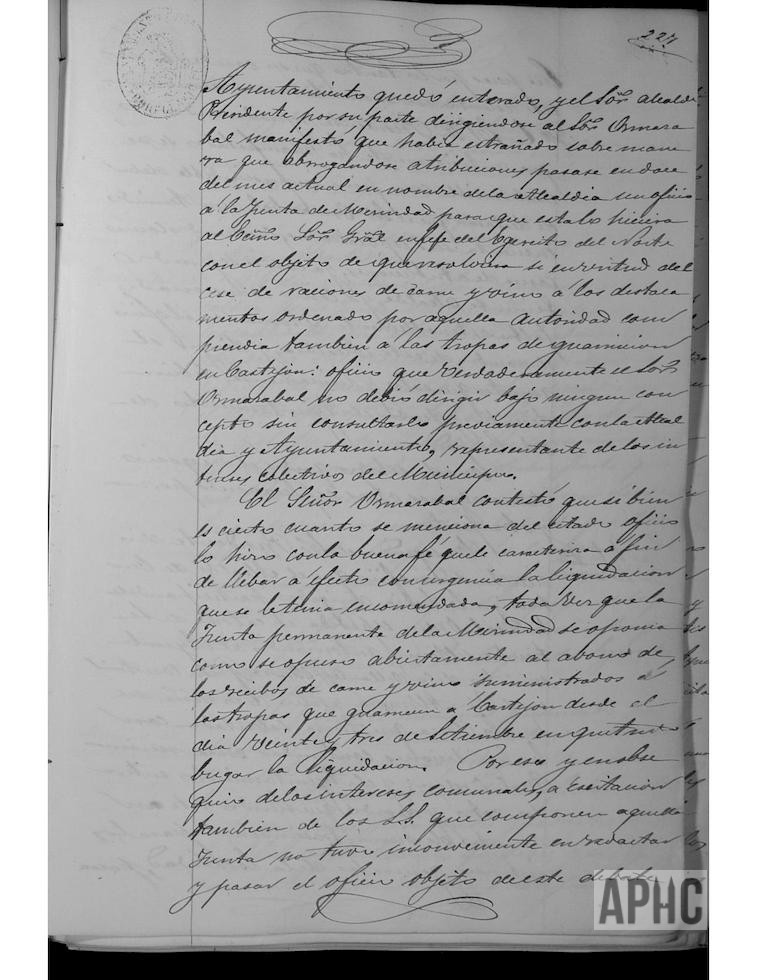 227
Ayuntamiento quedó enterado, y el Sor. Alcalde
Presidente por su parte dirigiendose al Sor. Ormara
bal manifestó que habia estrañado sobre mane
ra que abrogandose atribuciones pasase en doce
del mes actual en nombre de la Alcaldia un oficio
á la Junta de Merindad para que esta lo hiciera
al Ecmo Sor. Gral en Jefe del Egercito del Norte
con el objeto de que resolviera si en virtud del
cese de raciones de carne y vino á los destaca
mentos ordenado por aquella autoridad com
prendia tambien á las tropas de guarnicion
en Castejon: oficio que verdaderamente el Sor.
Ormarabal no debió dirigir bajo ningun con
cepto sin consultarlo previamente con la Alcal
dia y Ayuntamiento, representante de los in
tereses colectivos del Municipio.
El Señor Ormarabal contestó que si bien
es cierto cuanto se menciona del citado oficio
lo hizo con la buena fé que le caracteriza a fin
de llebar á efecto con urgencia la liquidacion
que se le tenia encomendada, toda vez que la
Junta permanente de la Merindad se oponia
como se opuso abiertamente al abono de
los recibos de carne y vino suministrados á
las tropas que guarnecen a Castejon desde el
dia veinte y tres de Setiembre en que tubo
lugar la liquidacion. Por eso y en obse
quio de los intereses comunales, a escitacion
tambien de los S.S. que componen aquella
Junta no tuvo inconveniente en redactar
y pasar el oficio objeto de este debate
APHC